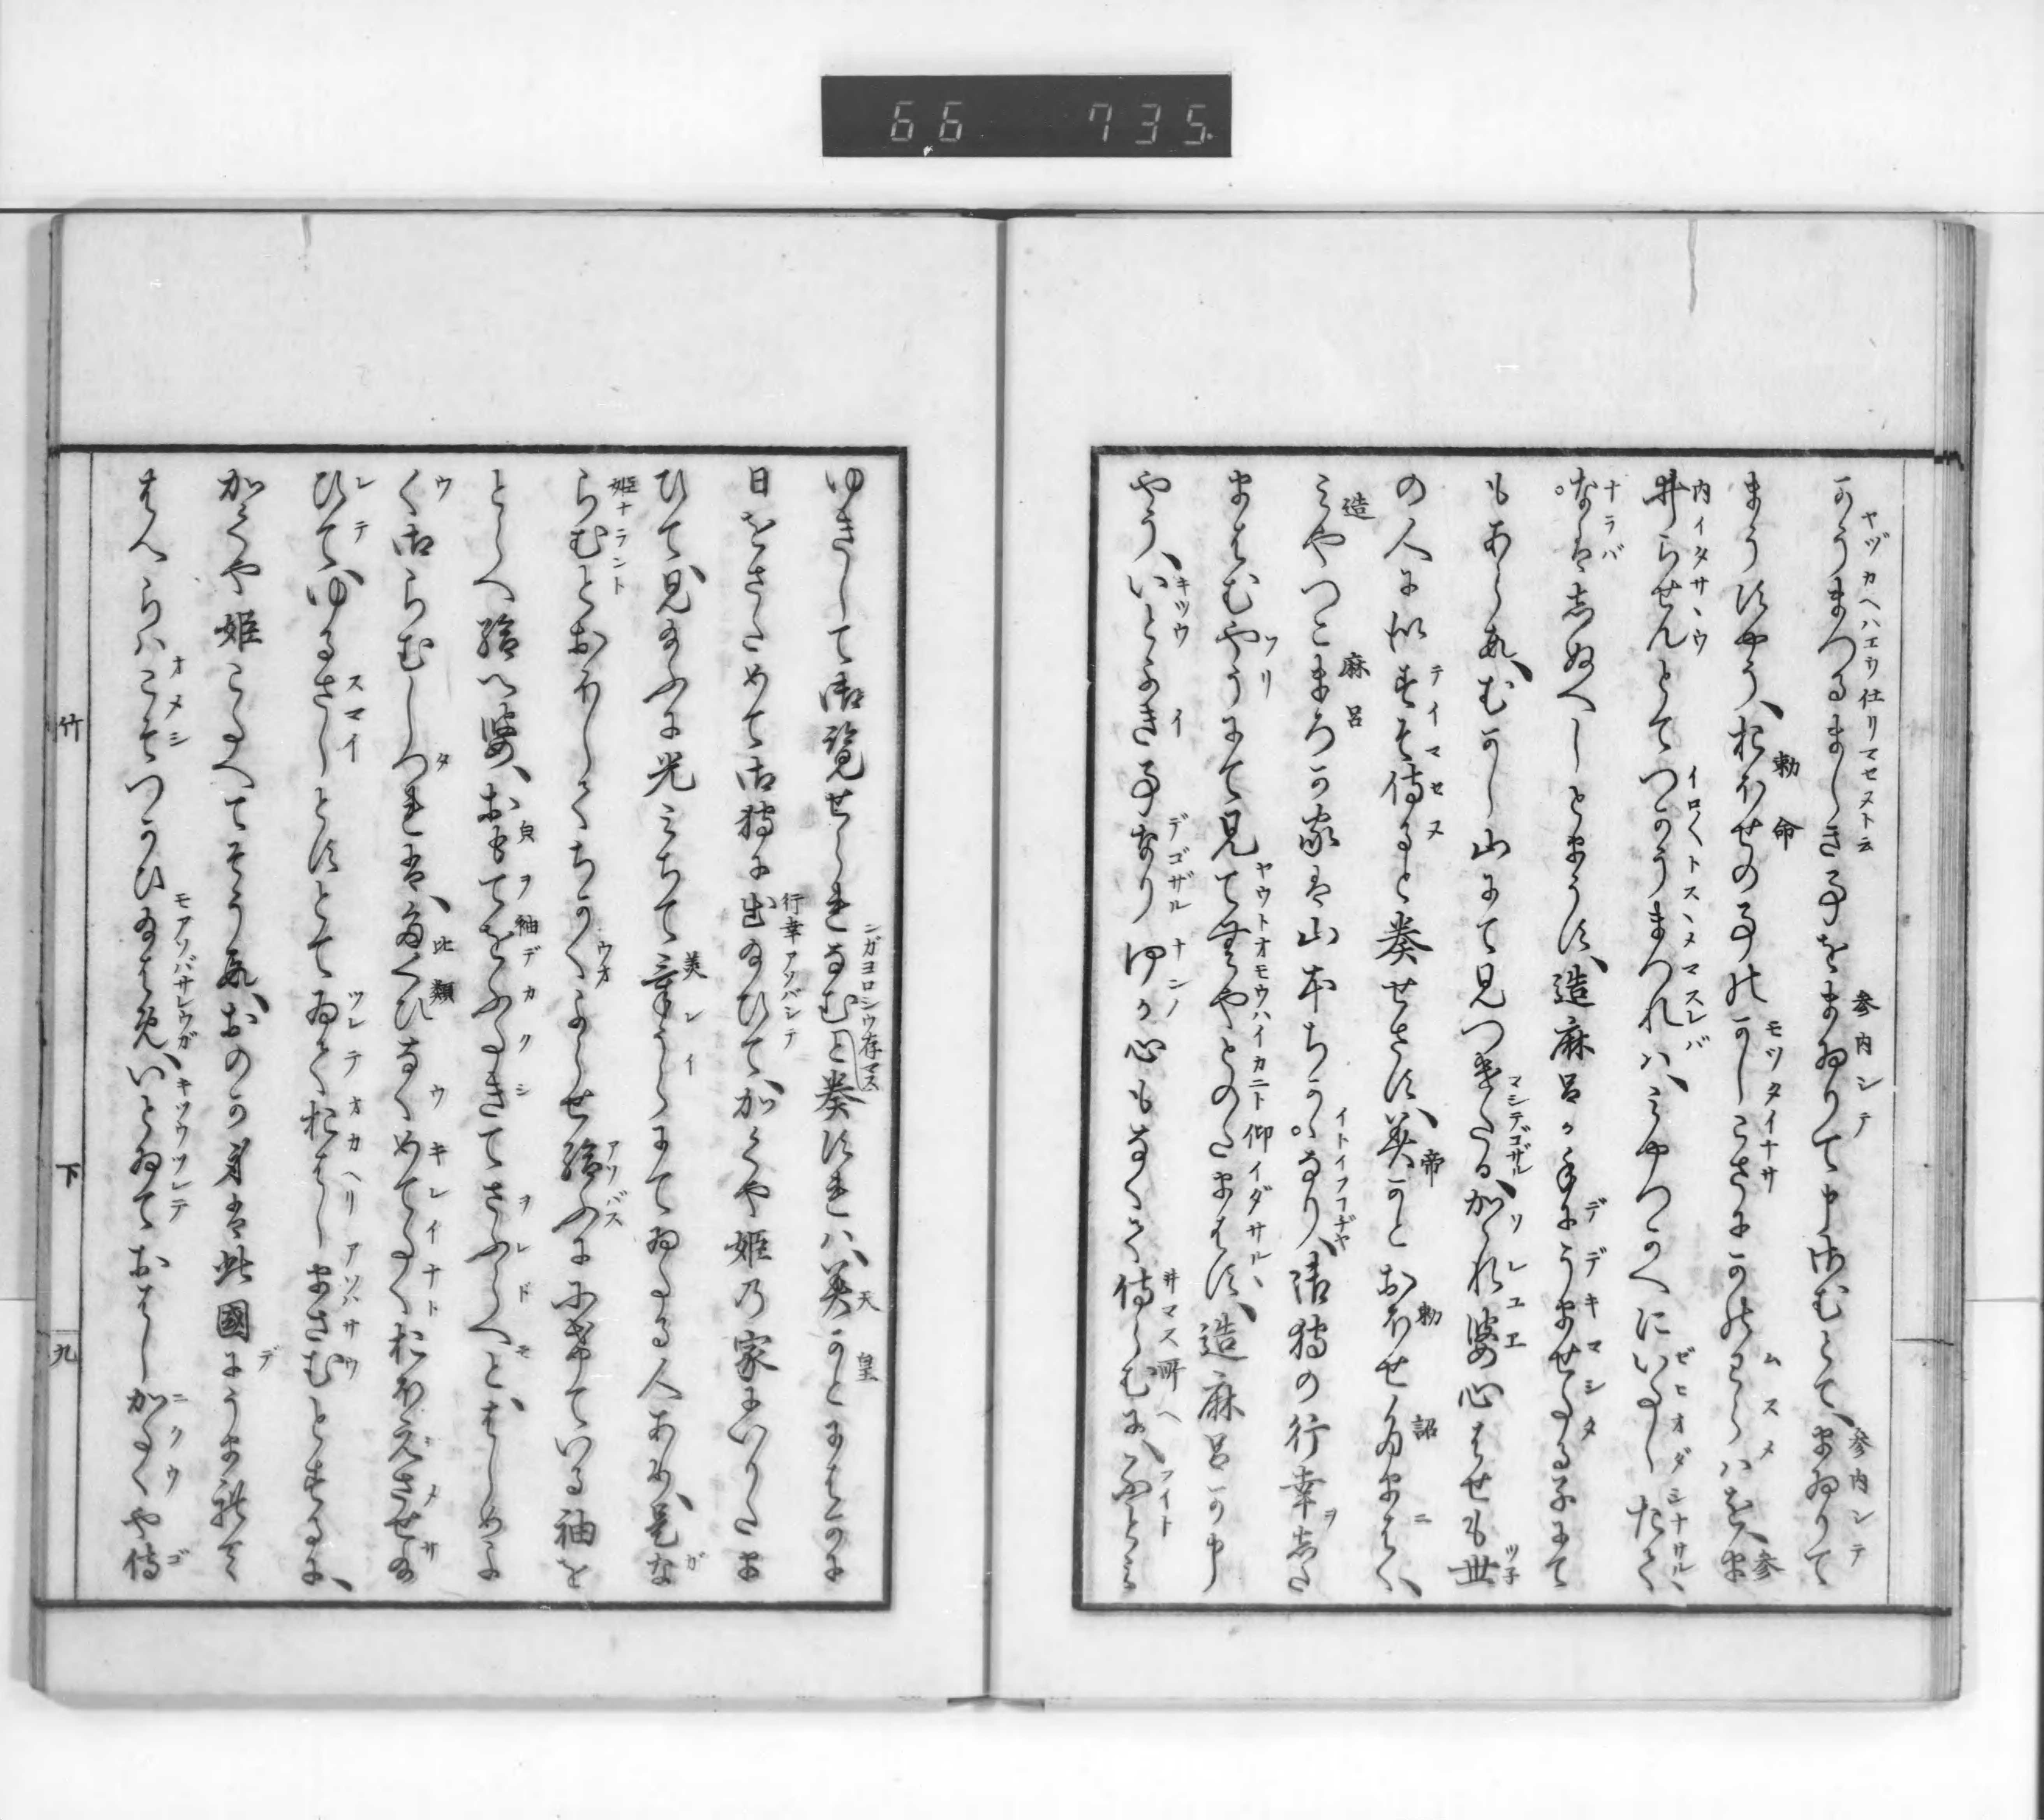 かうまつるましき事をまゐりて申さむとて、まゐりて
ヤヅカヘハエウ仕リマセヌト云 参内シテ 参内シテ
まうすやう、おほせの事のかしこさにかのわらハを、ま
勅命 モツタイナサ ムスメ 参
井らせんとてつかうまつれハ、みやつかへにいたしたて
内イタサヽウ イロ〱トスヽメマスレバ ゼヒオダシナサルヽ
なはしぬへしとまうす、造麻呂か手にうませたる子にて
ナラバ デデキマシタ
もあらす、むかし山にて見つけたる、かゝれ婆心はせも世
マシテゴザル ソレユエ ツ子
の人に似すそ侍ると奏せさす、美かとおほせたまはく、
テイマセヌ 帝 勅詔ニ
みやつこまろか家は山本ちかゝなり、御狩の行幸した
造 麻呂 イトイフコヂヤ ヲ
まはむやうにて見てむやとのたまはす、造麻呂か申
ツリ ヤウトオモウハイカニト仰イダサルヽ
やう、いとよき事なりゆか心もなくて侍らむに、ふとみ
キツウイ デゴザル ナンノ 井マス所ヘ フイト
ゆきして御覧せられなむと奏すれハ、美かとにはかに
ニガヨロシウ存マス 天皇
日をさためて御狩に出給ひて、かくや姫乃家にいりたま
行幸アソバシテ
ひて、見給ふに光みちて、けうらにてゐたる人あり、是な
美シイ ガ
らむとおほしてちかくよらせ給ふににけている袖を
姫ナラント ウオ アソバス
とらへ給へ婆、おもてをふたきてさふらへと、はしめよ
㒵ヲ袖デカクシ ヲレドモ
く御らむしつれは、たくひなくめてたくおほえさせ給
ウ タ 比類 ウキレイナト メサ
ひて、ゆるさしとすとてゐておはしまさむとするに、
レテ スマイ ツレテオカヘリアソバサウ
かくや姫こたへてそうす、おのか身は此國にうまれて
デ
はへらハこそつかひ給はめ、いとゐておはしかたくや侍
オメシ モアソバサレウガ キツウツレテ ニクウ ゴ
竹 下 九
66 735